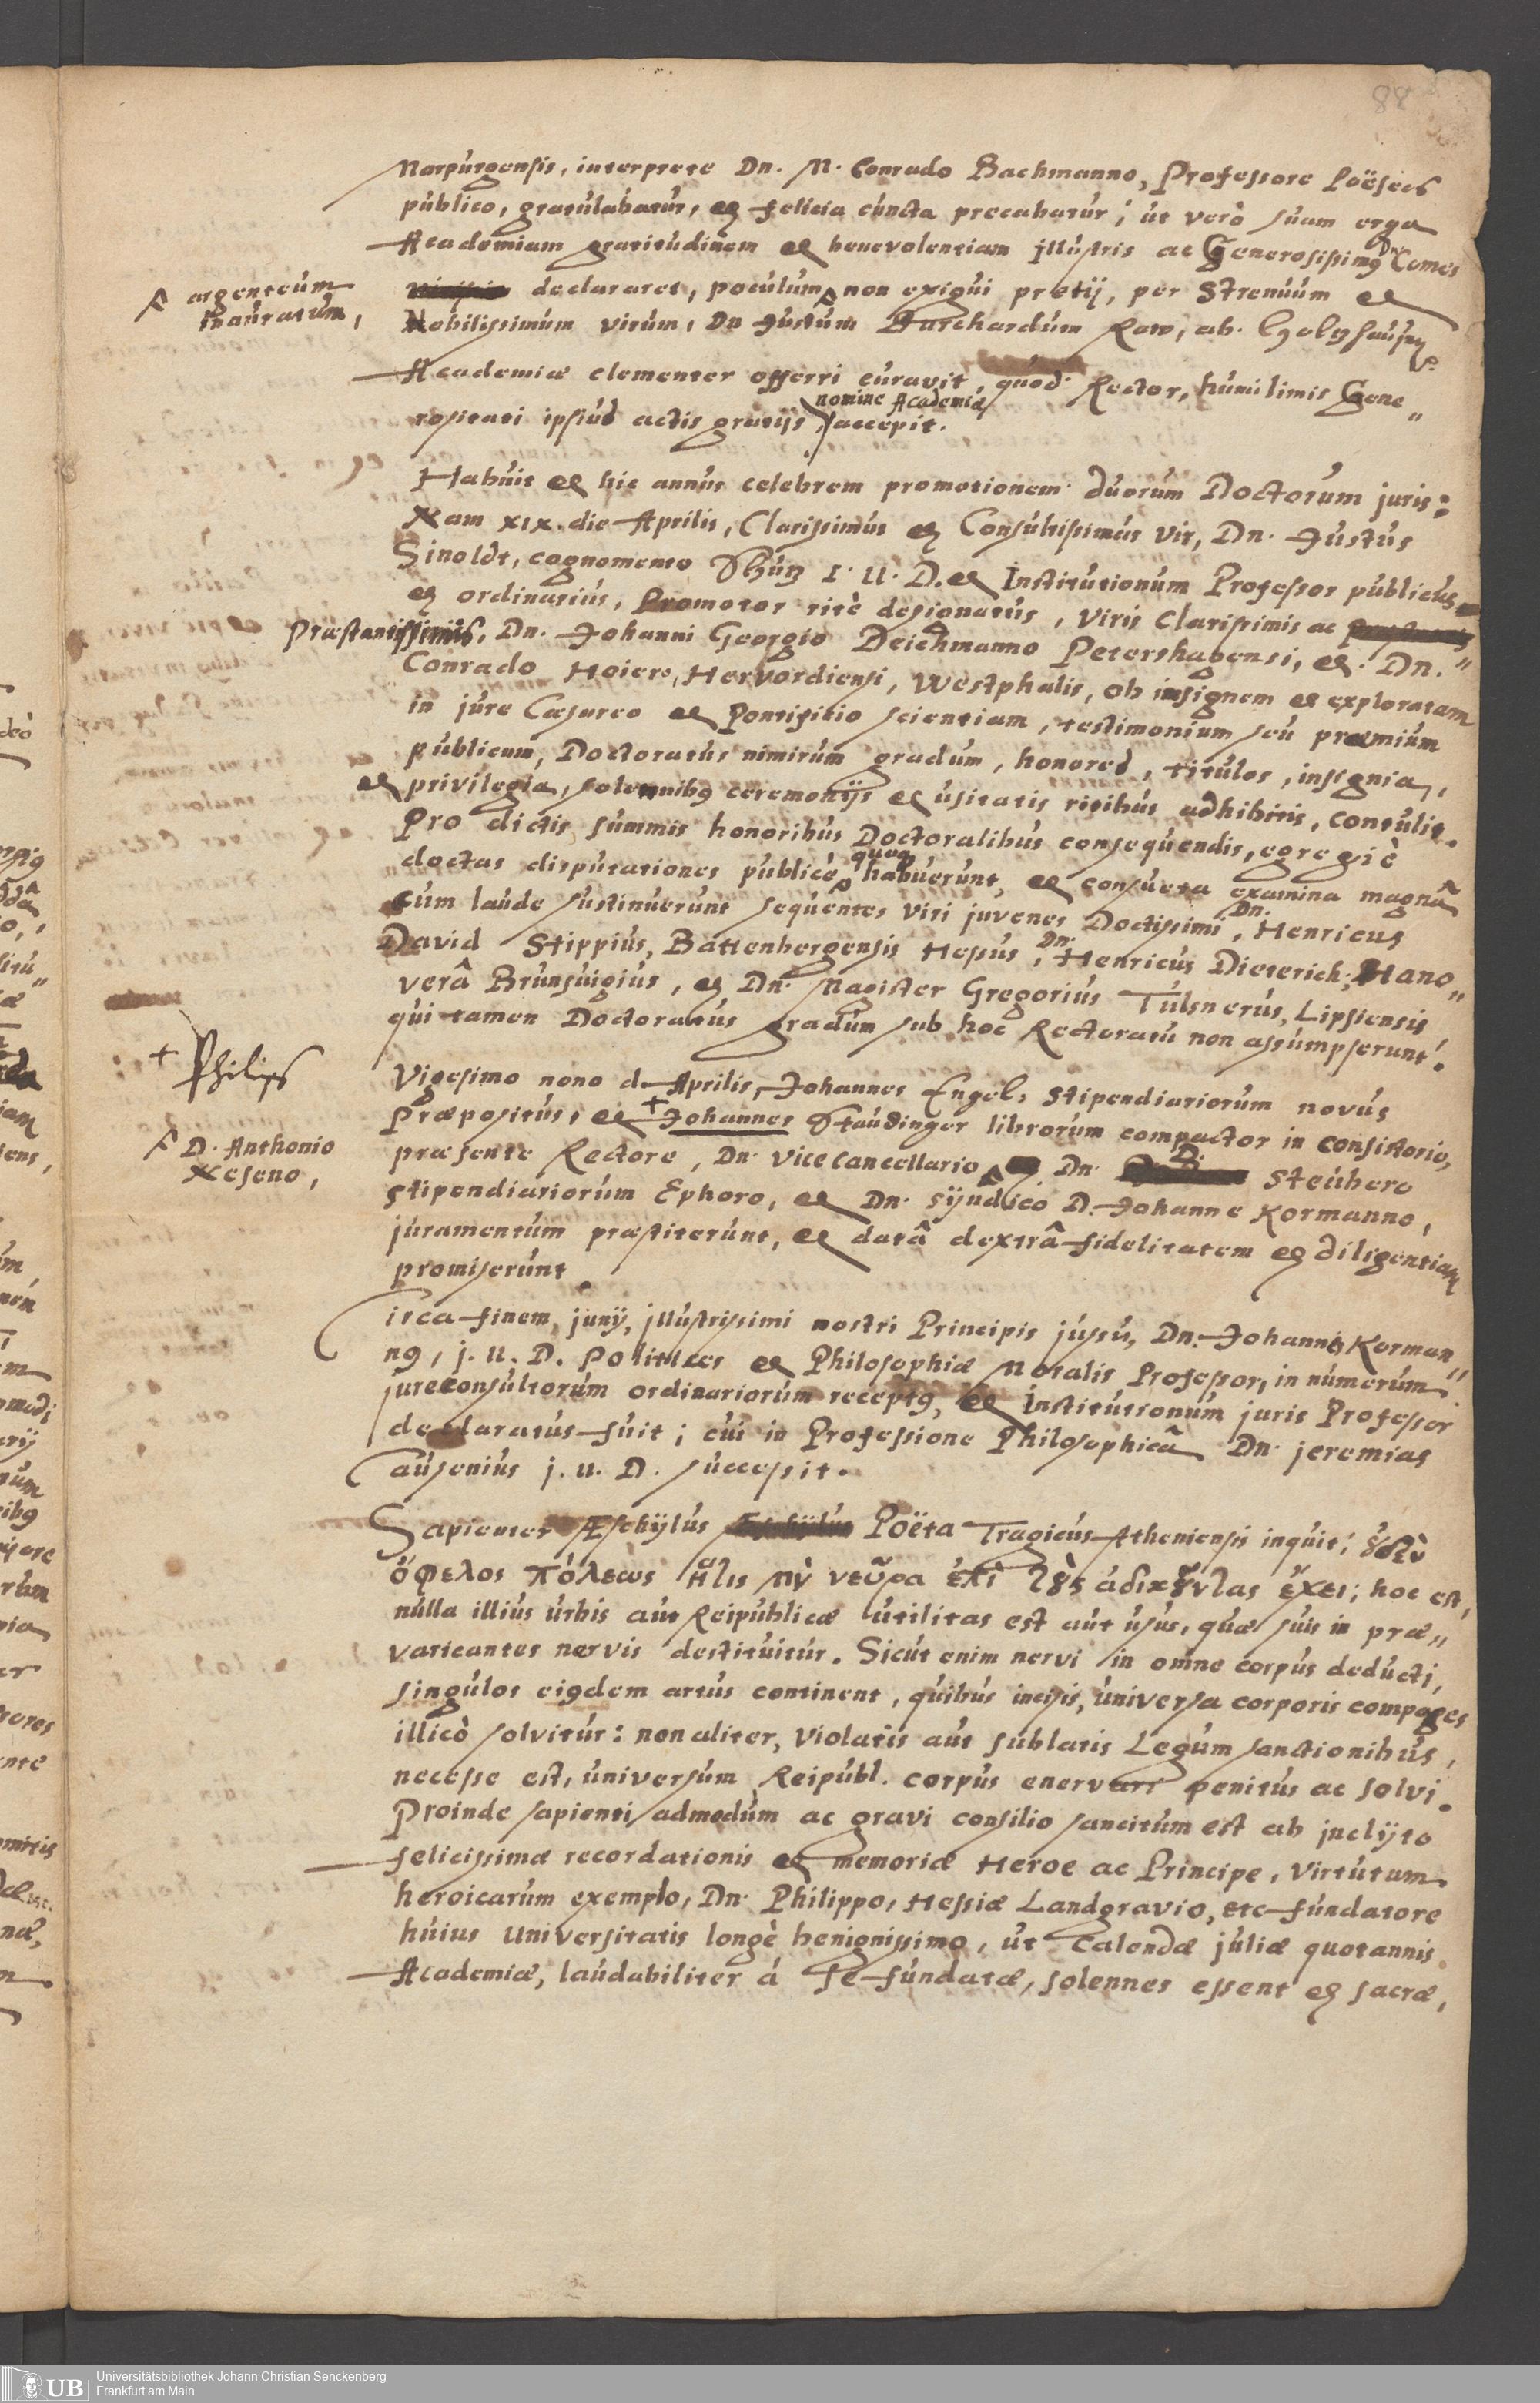 88
Marpurgensis, interprete Dn. M. Conrado Bachmanno, Professore Poëseos
publico, gratulabatur, et felicia cuncta precabatur; ut verò suam erga
Academiam gratitudinem et benevolentiam illustris ac Generosissimus Dn. Comes
declararet, poculum non exigui pretij, per Strenuum et
argenteum
inauratum,
Nobilissimum virum, Dn Justum Burchardum Raw, ab. Holtzhausen
Academiæ clementer offerri curavit, quod Rector, humilimis Gene„
nomine Academiæ
rositati ipsius actis gratijs, accepit.
Habuit et hic annus celebrem promotionem duorum Doctorum juris:
Nam XIX. die Aprilis, Clarissimus et Consultissimus vir, Dn. Justus
Sinoldt, cognomento Schütz I. U. D. et Institutionum Professor publicus
et ordinarius, Promotor ritè designatus, viris Clarissimis ac
Præstantissimis, Dn. Johanni Georgio Deichmanno Petershagensi, et Dn.„
Conrado Hoiero, Hervordiensi, Westphalis, ob insignem et exploratam
in jure Cæsareo et Pontificio scientiam, testimonium seu præmium
publicum, Doctoratus nimirum gradum, honores, titulos, insignia,
et privilegia, solennibus ceremonijs et usitatis ritibus adhibitis, contulit.
Pro dictis summis honoribus Doctoralibus consequendis, egregiè
quoq
doctas disputationes publicè habuerunt, et consueta examina magnâ
cum laude sustinuerunt sequentes viri juvenes Doctissimi, Dn. Henricus
David Stippius, Battenbergensis Hessus, Dn. Henricus Dieterich, Hano„
verâ Brunsuigius, et Dn. Magister Gregorius Tülsnerus, Lipsiensis
qui tamen Doctoratus gradum sub hoc Rectoratu non assumpserunt.
+ Philips
Vigesimo nono d. Aprilis, Johannes Engel, Stipendiariorum novus
Præpositus, et + Johannes Staudinger librorum compactor in consistorio,
D. Anthonio
Neseno,
præsente Rectore, Dn. Vicecancellario, Dn. Steubero
stipendiariorum Ephoro, et Dn. Syndico D. Johanne Kormanno,
juramentum præstiterunt, et datâ dextrâ fidelitatem et diligentiam
promiserunt.
Circa finem junij, illustrissimi nostri Principis jussu, Dn. Johannes Korman„
nus, j. U. D. Politices et Philosophiæ Moralis Professor, in numerum
jureconsultorum ordinariorum receptus, et Institutionum juris Professor
declaratus fuit; cui in Professione Philosophicâ Dn. jeremias
Causenius j. U. D. successit.
Sapienter Æschylus Poëta Tragicus Atheniensis inquit; οὐδὲν
ὄφελος πόλεως ἥτις μὴ νεῦρα ἐπὶ τοὺς ἀδικοῦντας ἔχει; hoc est,
nulla illius urbis aut Reipublicæ utilitas est aut usus, quæ suis in præ„
varicantes nervis destituitur. Sicut enim nervi in omne corpus deducti,
singulos eiusdem artus continent, quibus incisis, universa corporis compages
illicò solvitur: non aliter, violatis aut sublatis Legum sanctionibus,
necesse est, universum Reipubl. corpus enervari penitus ac solvi.
Proinde sapienti admodum ac gravi consilio sancitum est ab inclyto
felicissimæ recordationis et memoriæ Heroe ac Principe, virtutum
heroicarum exemplo, Dn. Philippo, Hessiæ Landgravio, etc fundatore
huius Universitatis longè benignissimo, ut Calendæ juliæ quotannis
Academiæ, laudabiliter á se fundatæ, solennes essent et sacræ,
UB
Universitätsbibliothek Johann Christian Senckenberg
Frankfurt am Main